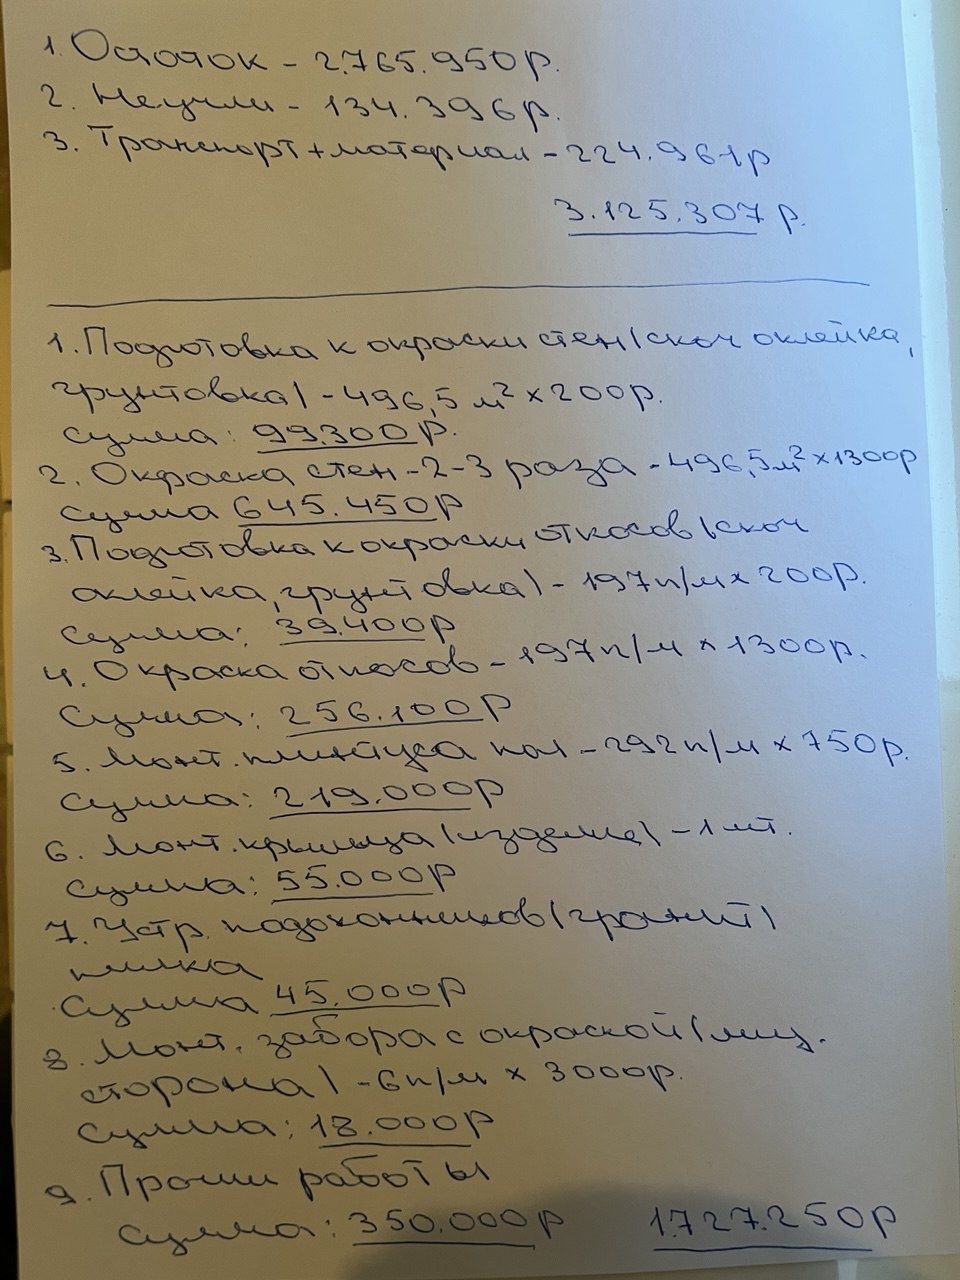 1. Остаток - 2.765.950р.
2. Неучли - 134.396р.
3. Транспорт+материал - 224.961р
3.125.307р.
1. Подготовка к окраски стен/скоч оклейка,
грунтовка/ - 496,5 м² х 200р.
сумма: 99.300р.
2. Окраска стен - 2-3 раза - 496,5м² х 1300р
сумма 645.450р
3. Подготовка к окраски откосов/скоч
оклейка, грунтовка/ - 197п/м х 200р.
сумма: 39.400р
4. Окраска откосов - 197п/м х 1300р.
сумма: 256.100р
5. Монт. плинтуса пол - 292п/м х 750р.
сумма: 219.000р
6. Монт. крыльца/изделие/ - 1шт.
сумма: 55.000р
7. Устр. подоконников/гранит/
пилка
сумма 45.000р
8. Монт. забора с окраской/лиц.
сторона/ - 6п/м х 3000р.
сумма: 18.000р
9. Прочии работы
сумма: 350.000р 1.727.250р